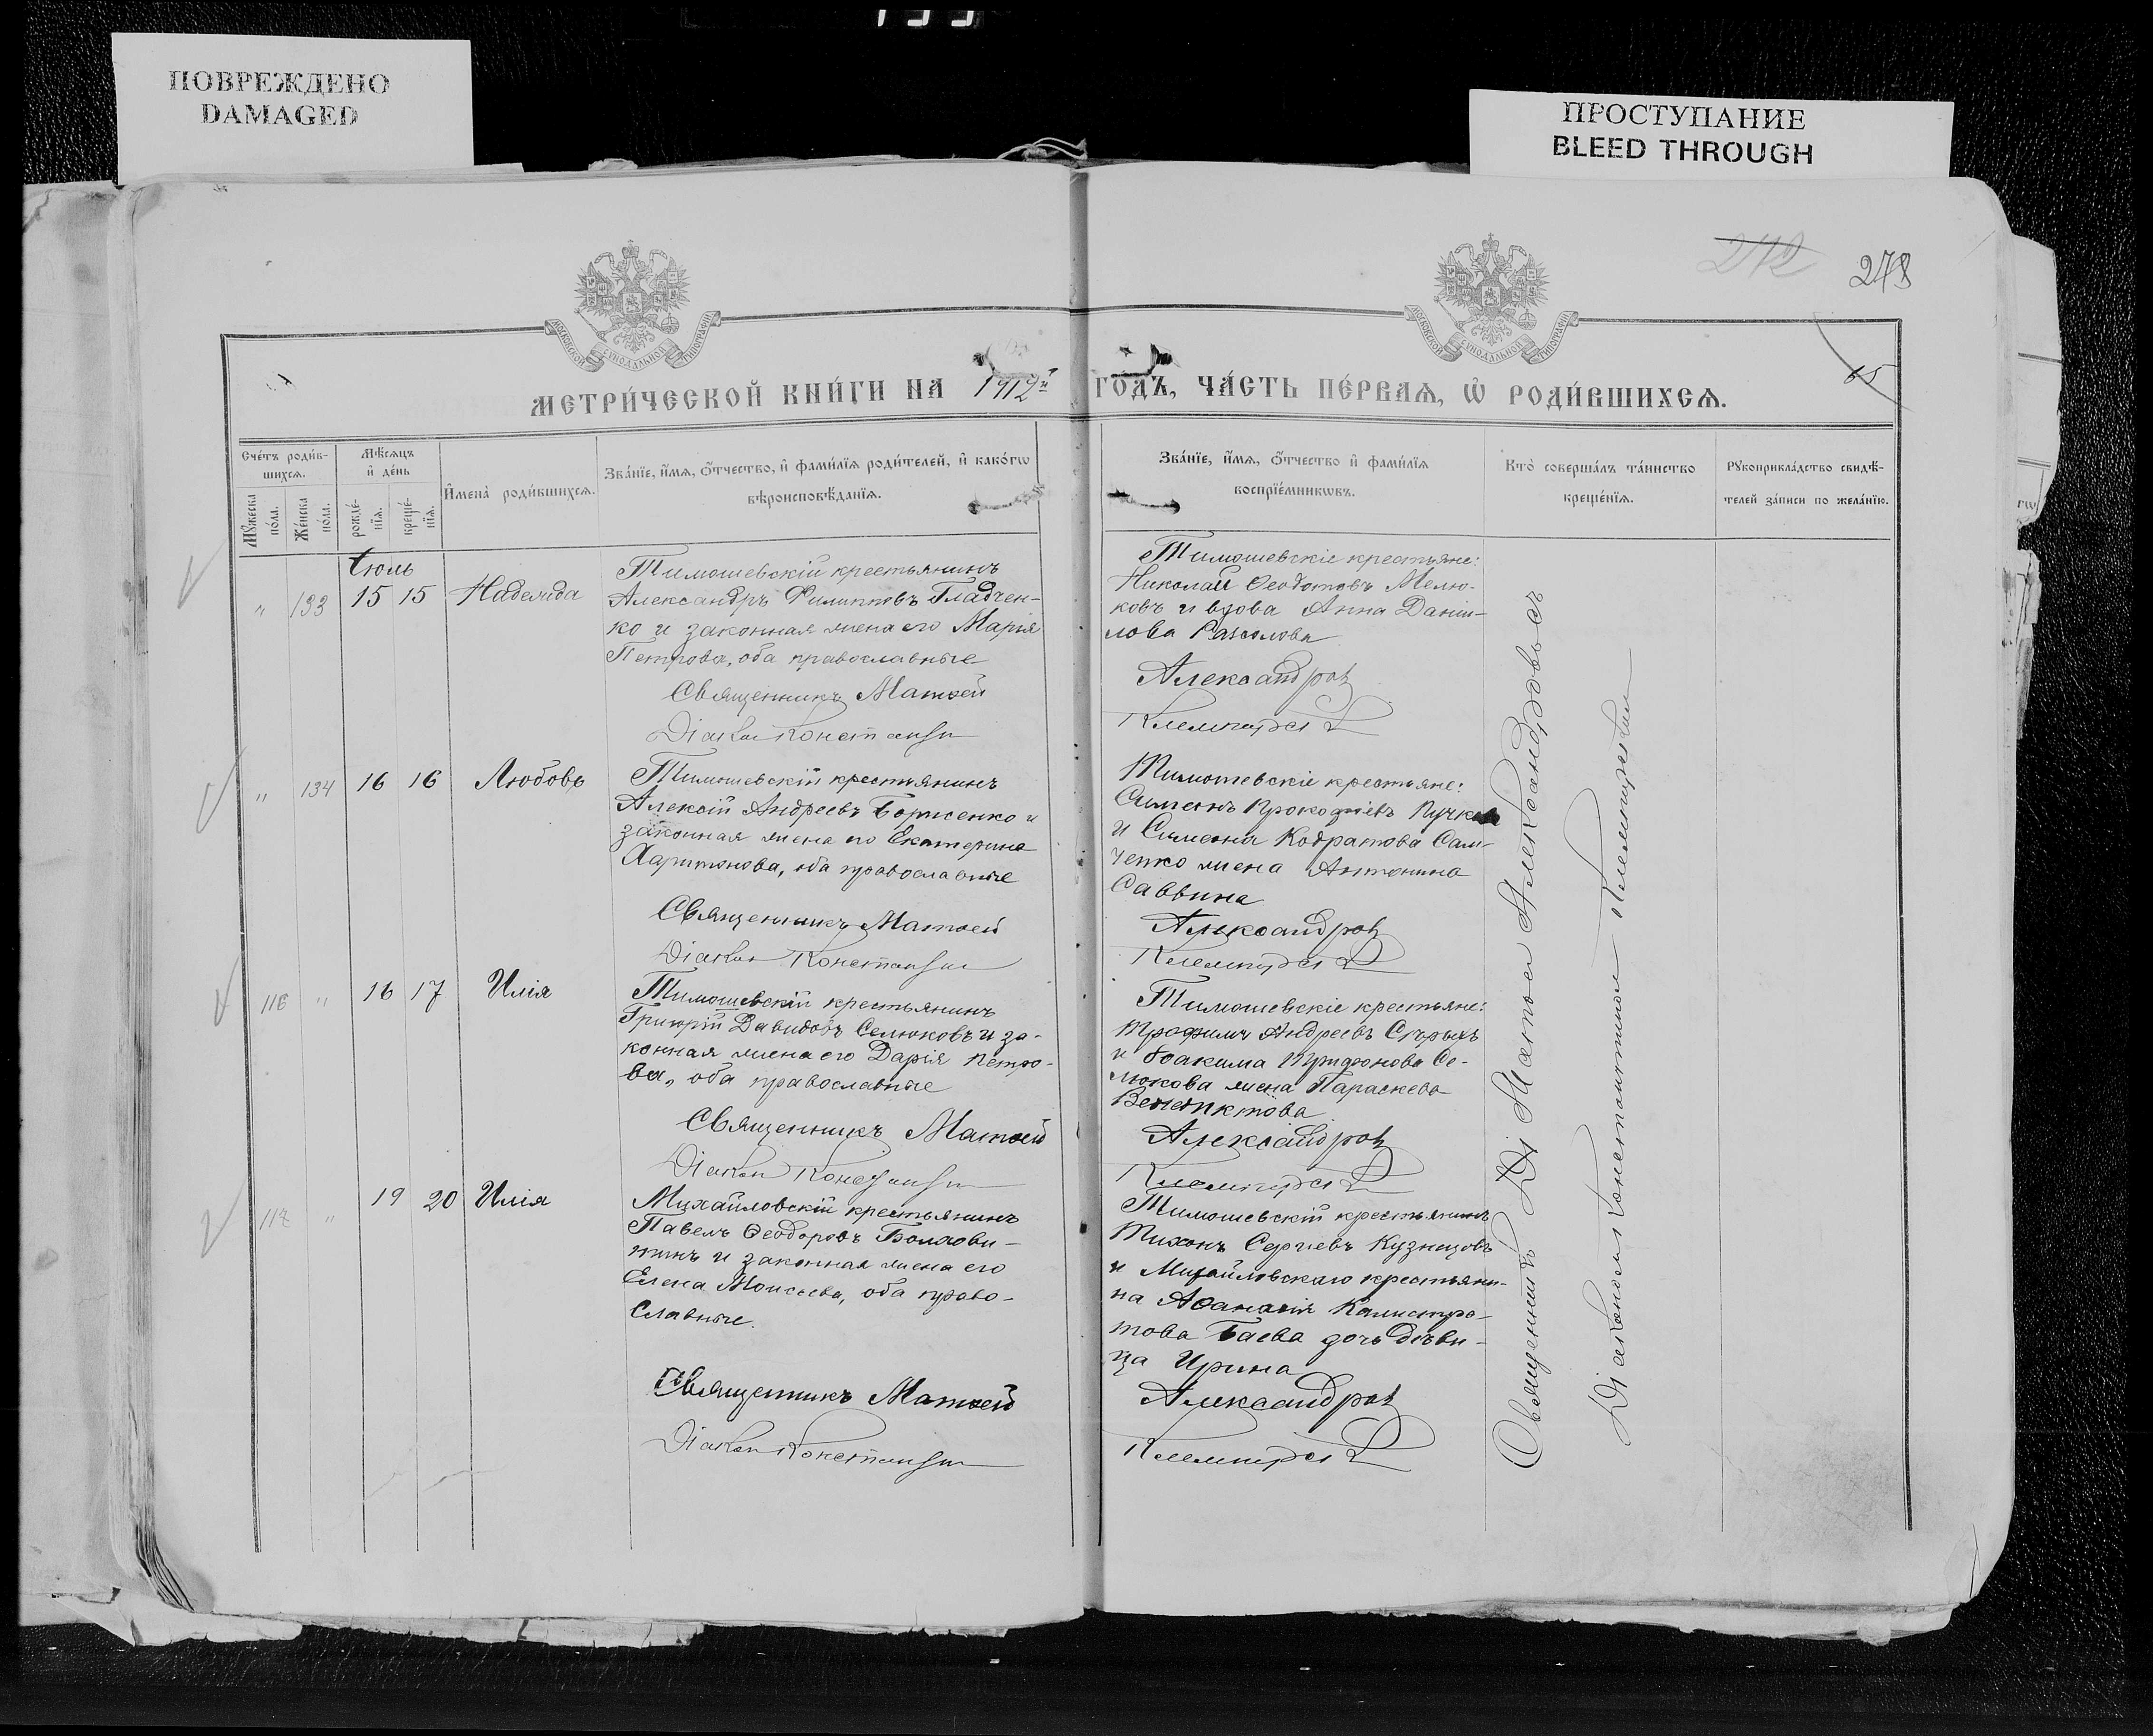 ПОВРЕЖДЕНО
DAMAGED
ПРОСТУПАНИЕ
BLEED THROUGH
212
278
65
МОСКОВСКОЙ СѴНОДАЛЬНОЙ ТИПОГРАФІИ
МОСКОВСКОЙ СѴНОДАЛЬНОЙ ТИПОГРАФІИ
МЕТРИ́ЧЕСКОЙ КНИ́ГИ НА 1912й ГО́ДЪ, ЧА́СТЬ ПЕ́РВАѦ, Ѡ҆ РОДИ́ВШИХСѦ.
Сче́тъ роди́в-
шихсѧ.
Мꙋ́жеска по́ла.
Же́нска по́ла.
Мѣ́сѧцъ
и҆ де́нь
рожде́-
нїѧ.
креще́-
нїѧ.
И҆мена̀ роди́вшихсѧ.
Зва́нїе, и҆́мѧ, ѻ҆́тчество, и҆ фами́лїѧ роди́телей, и҆ како́гѡ
вѣроисповѣ́данїѧ.
Зва́нїе, и҆́мѧ, ѻ҆́тчество и҆ фами́лїѧ
воспрїе́мникѡвъ.
Кто̀ соверша́лъ та́инство
креще́нїѧ.
Рꙋкоприкла́дство свидѣ́-
телей за́писи по жела́нїю.
Іюль
" 133 15 15 Надежда
Тимошевскій крестьянинъ
Александръ Филипповъ Гладчен-
ко и законная жена его Марья
Петрова, оба православные
Священникъ Матѳей
Діаконъ Константин
Тимошевскіе крестьяне:
Николай Ѳеодотовъ Мелю-
ковъ и вдова Анна Дании-
лова
Александров
" 134 16 16 Любовь
Тимошевскій крестьянинъ
Алексій Андреевъ Борисенко и
законная жена его Екатерина
Харитонова, оба православные
Священникъ Матѳей
Діаконъ Константин
Тимошевскіе крестьяне:
Симеонъ Прокофіевъ Пучков
и Симеона Кодратова Сам-
ченко жена Антонина
Саввина
Александров
116 " 16 17 Илія
Тимошевскій крестьянинъ
Григорій Давидовъ Селюковъ и за-
конная жена его Дарія Петро-
ва, оба православные
Священникъ Матѳей
Діаконъ Константин
Тимошевскіе крестьяне:
Трофимъ Андреевъ Сѣрыхъ
и Іоакима Трифонова Се-
люкова жена Параскева
Венедиктова
Александров
117 " 19 20 Илія
Михайловскій крестьянинъ
Павелъ Ѳеодоровъ Болхови-
тинъ и законная жена его
Елена Моисеева, оба право-
славные.
Священникъ Матѳей
Діаконъ Константин
Тимошевскій крестьянинъ
Тихонъ Сергіевъ Кузнецовъ
и Михайловскаго крестьяни-
на Аѳанасія Калистра-
това Баева дочь дѣви-
ца Ирина
Александров
Священникъ Матѳей Александровъ съ
Діакономъ Константиномъ